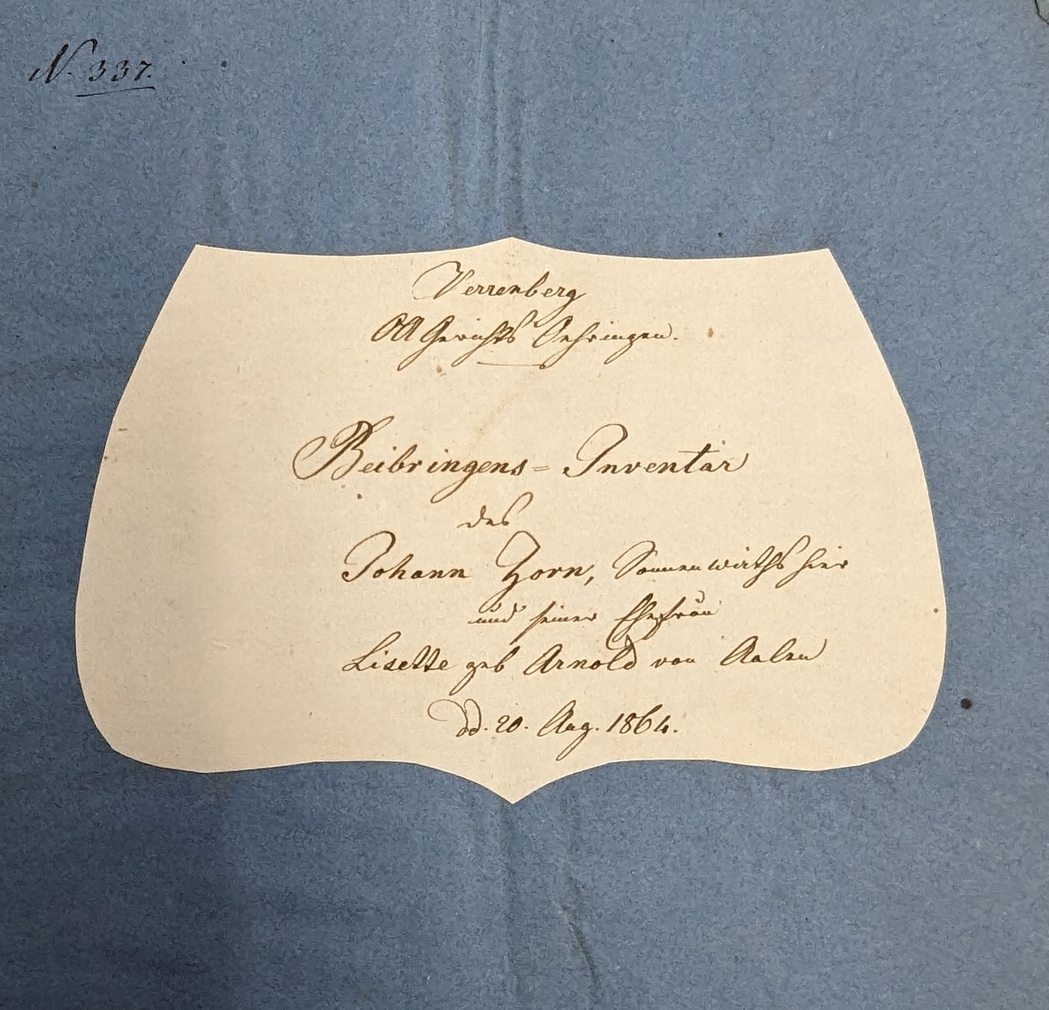 N. 337.
Verrenberg
OAGerichts Oehringen.
Beibringens-Inventar
des
Johann Zorn, Sonnenwirths hier
und seiner Ehefrau
Lisette geb Arnold von Aalen
dd. 20. Aug. 1864.